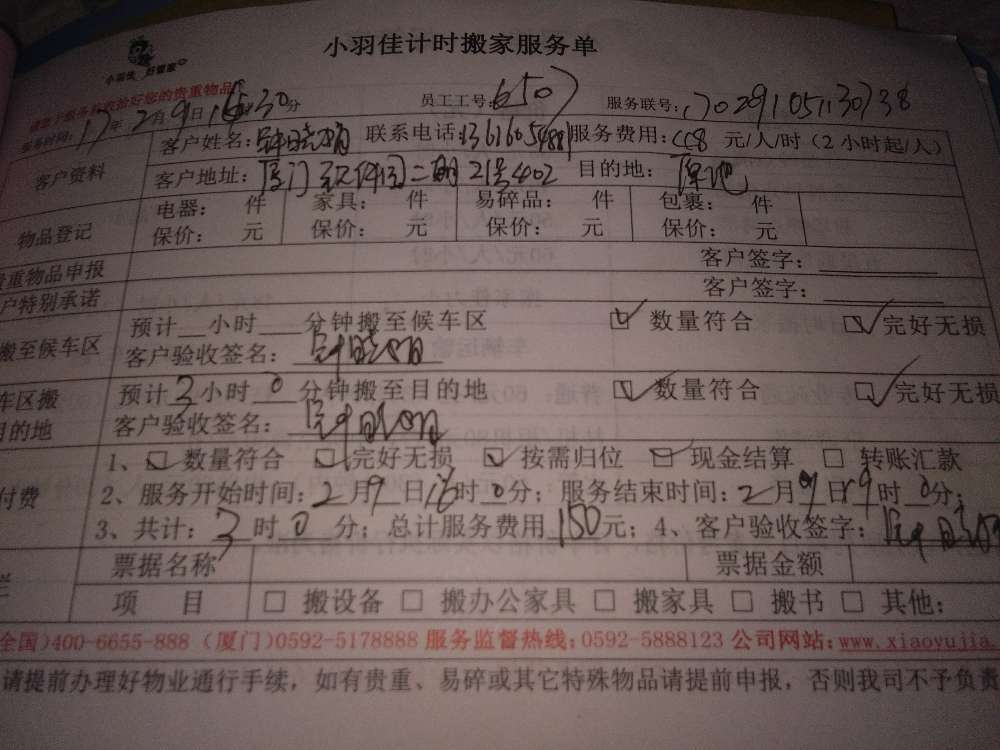 小羽佳计时搬家服务单
小羽佳 好管家
请您于服务前收拾好您的贵重物品
服务时间：17年2月9日16时30分 员工工号：6507 服务联号：
客户资料 客户姓名：钟晓 联系电话： 服务费用： 元/人/时（2小时起/人）
客户地址：厦门软件园二期21号402 目的地：原地
物品登记 电器： 件 家具： 件 易碎品： 件 包裹： 件
保价： 元 保价： 元 保价： 元 保价： 元
贵重物品申报 客户签字：
户特别承诺 客户签字：
搬至候车区 预计 小时 分钟搬至候车区 数量符合 完好无损
客户验收签名：钟晓
车区搬 预计3小时0分钟搬至目的地 数量符合 完好无损
目的地 客户验收签名：钟
付费 1、数量符合 完好无损 按需归位 现金结算 转账汇款
2、服务开始时间：2月9日16时0分；服务结束时间：2月9日19时0分；
3、共计：3时0分；总计服务费用150元；4、客户验收签字：钟晓
栏 票据名称 票据金额
项 目 搬设备 搬办公家具 搬家具 搬书 其他：
全国)400-6655-888（厦门)0592-5178888 服务监督热线：0592-5888123 公司网站：www.xiaoyujia.
请提前办理好物业通行手续，如有贵重、易碎或其它特殊物品请提前申报，否则我司不予负责